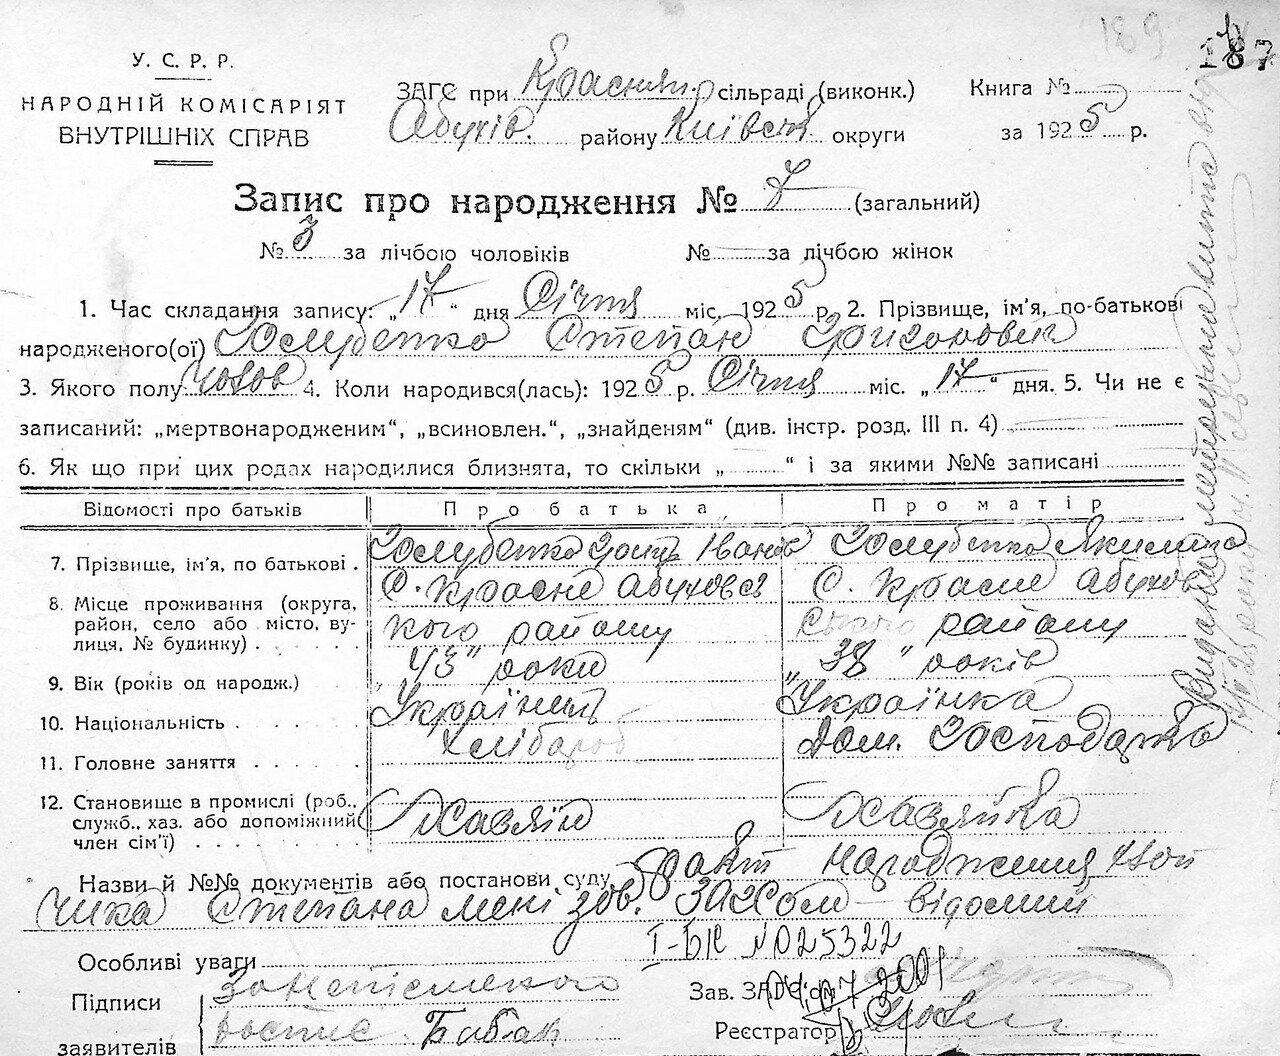 189
187
У. С. Р. Р.
НАРОДНІЙ КОМІСАРІЯТ
ВНУТРІШНІХ СПРАВ
ЗАГС при Краснян. сільраді (виконк.)
Абухів. району Київськ округи
Книга №
за 1925 р.
Запис про народження № 7 (загальний)
№ 3 за лічбою чоловіків № за лічбою жінок
1. Час складання запису: „17" дня Січня міс. 1925 р. 2. Прізвище, ім'я, по-батькові
народженого(ої) Голубенко Степан Григорович
3. Якого полу чолов 4. Коли народився(лась): 1925 р. Січня міс. „17" дня. 5. Чи не є
записаний: „мертвонародженим", „всиновлен.", „знайденям" (див. інстр. розд. III п. 4)
6. Як що при цих родах народилися близнята, то скільки „ " і за якими №№ записані
Відомості про батьків Про батька Про матір
7. Прізвище, ім'я, по батькові . Голубенко Григ Іванов Голубенко Якилина
8. Місце проживання (округа, район, село або місто, вулиця, № будинку) с. Красне Абуховс с. Красне Абухов
кого району ського району
9. Вік (років од народж.) „43" роки „38" років
10. Національність Українець Українка
11. Головне заняття Хлібороб Дом. Господарка
12. Становище в промислі (роб., служб., хаз. або допоміжний член сім'ї) Хазяїн Хазяйка
Назви й №№ документів або постанови суду Факт народження хлоп
чика Степана мені зав. ЗАГСом відомий
I-БК №025322
Особливі уваги
Підписи
заявителів
За неписьменого
роспис Бабак
Зав. ЗАГСом
Реєстратор